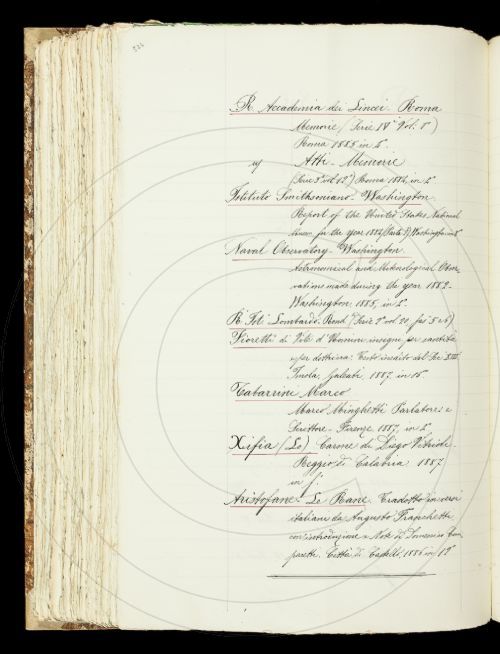 R. Accademia dei Lincei. Roma
Memorie (Serie IVª Vol. 1º)
Roma 1885 in 4º
Atti - Memorie
(Serie 3ª vol. 12º) Roma 1882, in 4º
Istituto Smithsoniano - Washington
Report of the United States National
Museum for the year 1884 (Parte) Washington in 8º
Naval Observatory - Washington
Astronomical and Meteorological Obser-
vations made during the year 1882 -
Washington, 1885, in 4º
R. Ist. Lombardo. Rend. (Serie 2ª vol. 20 fas. 5 e 6)
Fioretti di Vite d'Uomini insigni per santità
e per dottrina. Testo inedito del Sec. XIII
Imola, Galeati, 1887, in 16º
Tabarrini Marco
Marco Minghetti Parlatore e
Scrittore - Firenze 1887, in 8º
Xifia (Lo) Carme di Diego Vitrioli -
Reggio di Calabria 1887
in f.
Aristofane - Le Rane. Tradotto in versi
italiani da Augusto Franchetti
con introduzione e Note di Domenico Com-
paretti. Città di Castello, 1886 in 12º